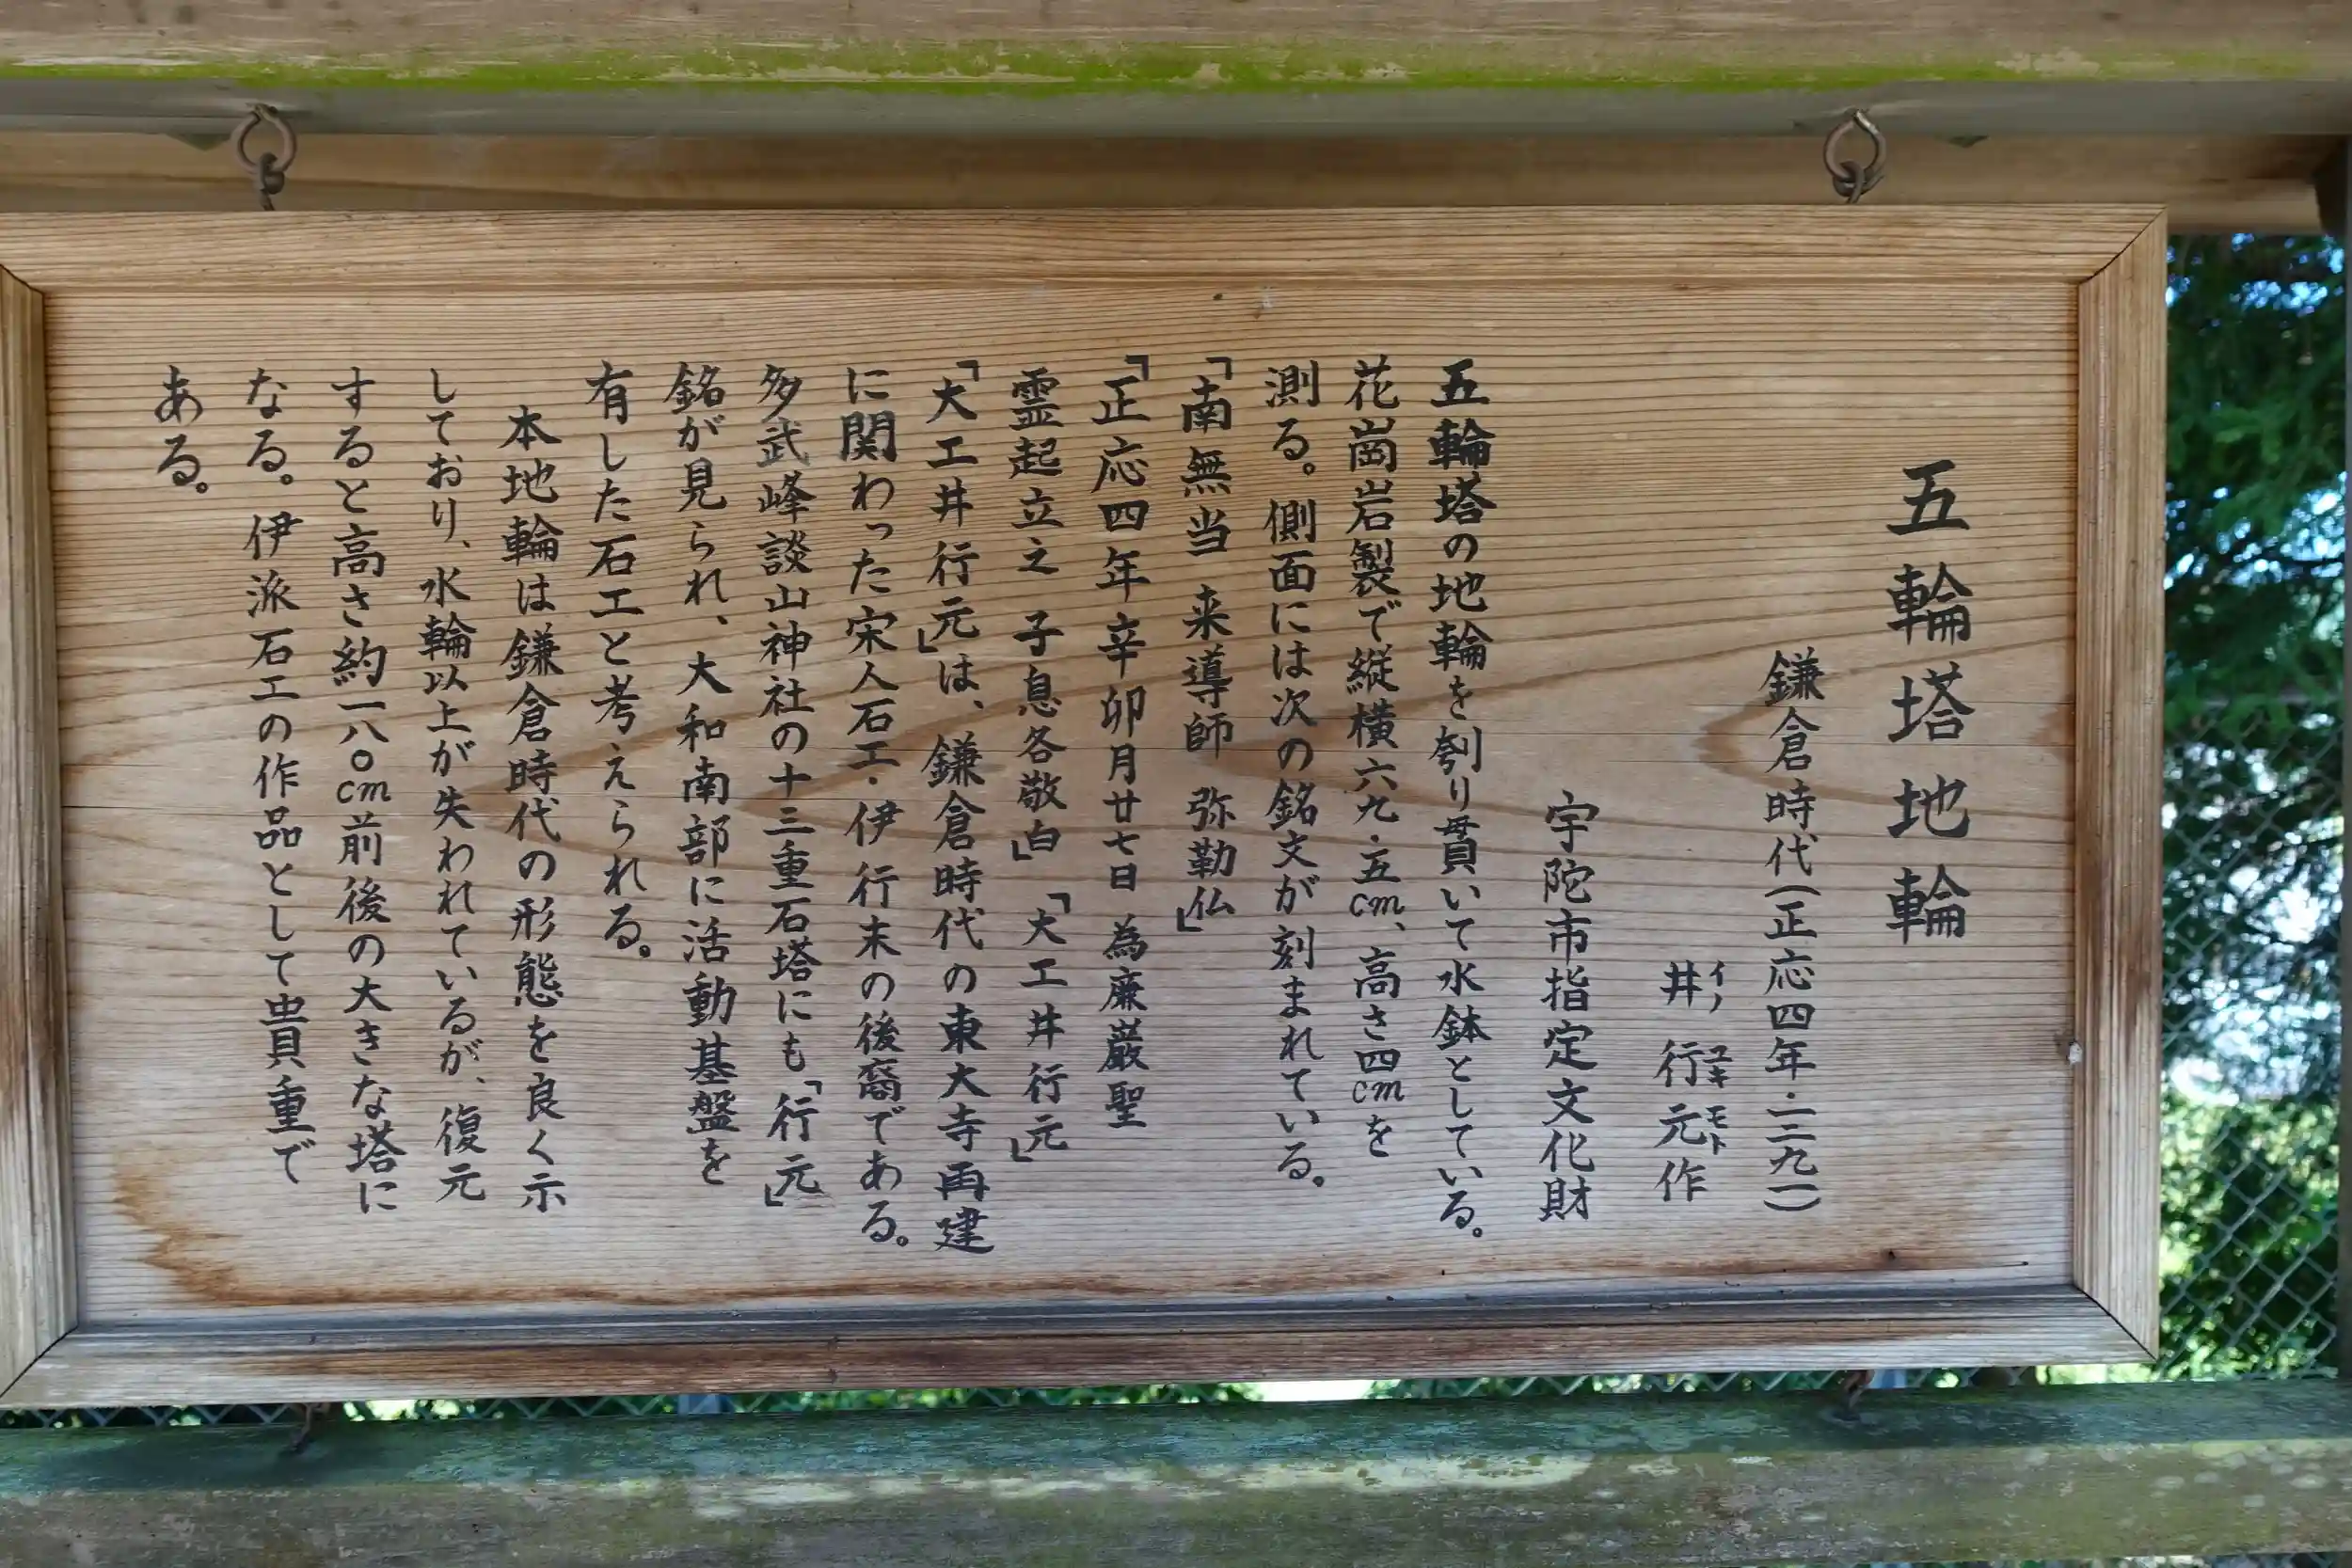 五輪塔地輪
鎌倉時代(正応四年・一二九一)
井行元作
イノ ユキ モト
宇陀市指定文化財
五輪塔の地輪を刳り貫いて水鉢としている。
花崗岩製で縦横六九・五cm、高さ四cmを
測る。側面には次の銘文が刻まれている。
「南無当 来導師 弥勒仏」
「正応四年辛卯月廿七日 為廉厳聖
霊起立之 子息各敬白」「大工井行元」
「大工井行元」は、鎌倉時代の東大寺再建
に関わった宋人石工・伊行末の後裔である。
多武峰談山神社の十三重石塔にも「行元」
銘が見られ、大和南部に活動基盤を
有した石工と考えられる。
本地輪は鎌倉時代の形態を良く示
しており、水輪以上が失われているが、復元
すると高さ約一八〇cm前後の大きな塔に
なる。伊派石工の作品として貴重で
ある。